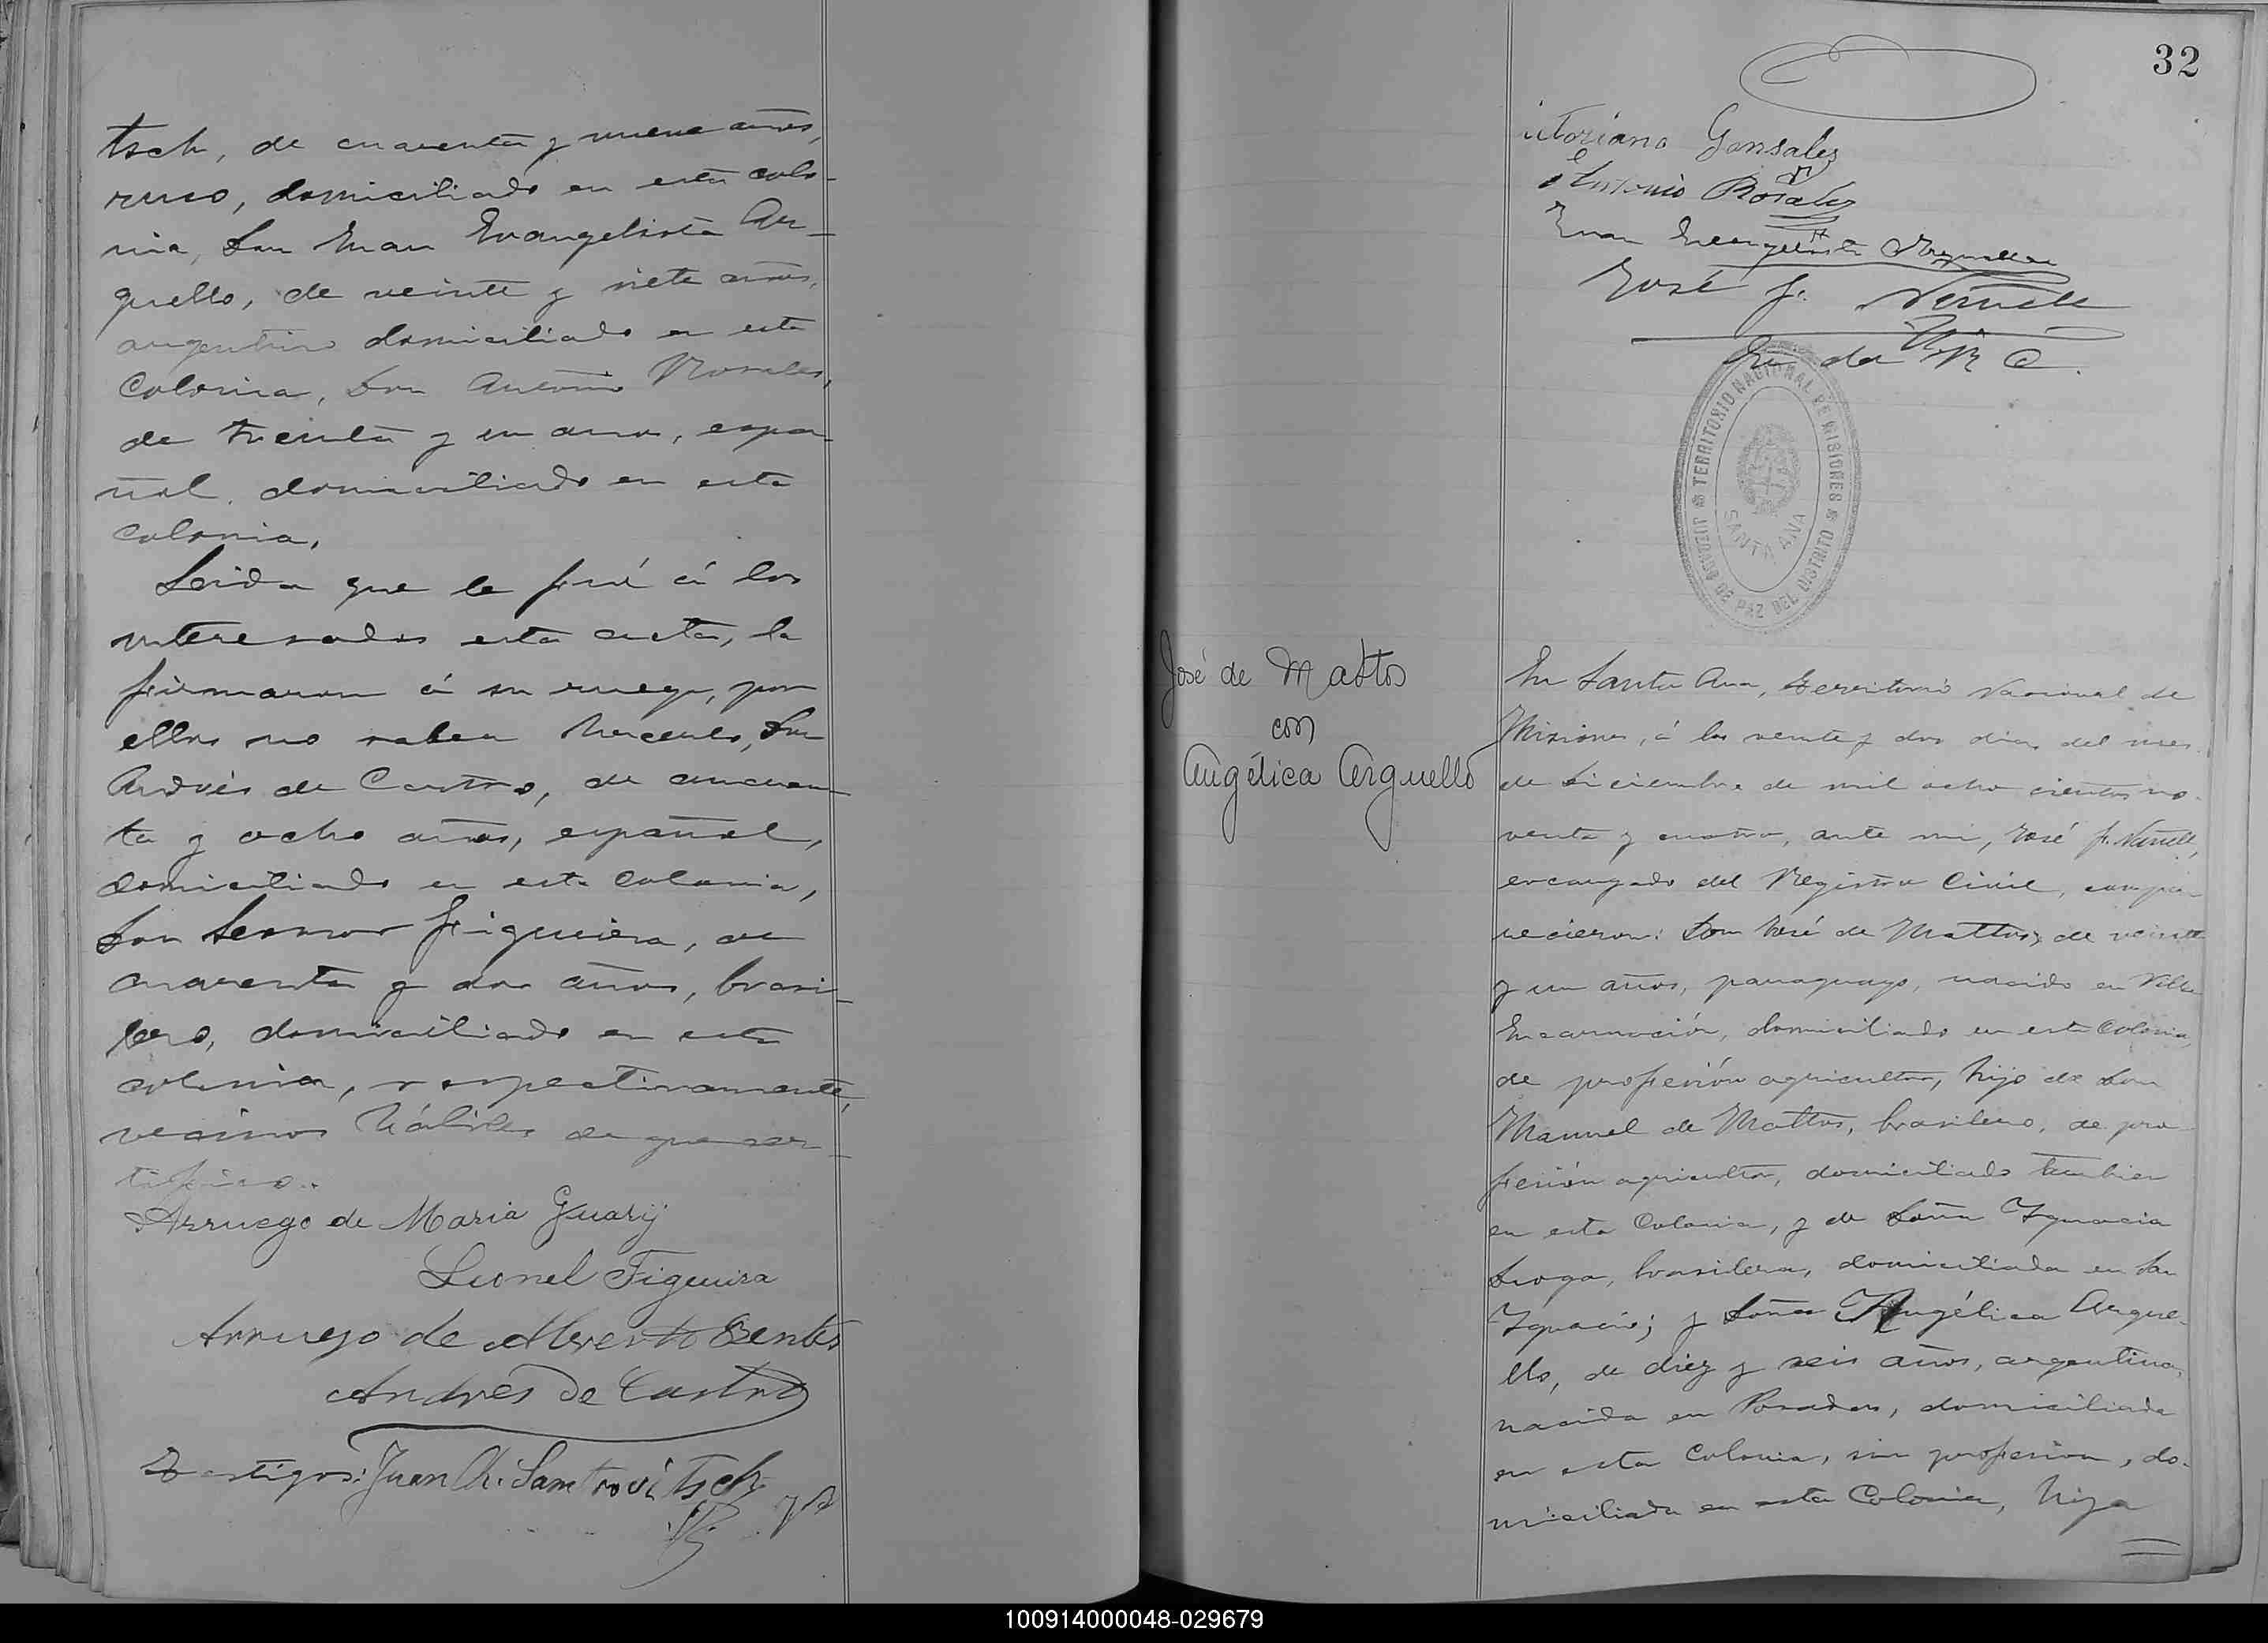 tsch, de cuarenta y nueve años,
ruso, domiciliado en esta colo-
nia, Don Juan Evangelista Ar-
guello, de veinte y siete años,
argentino domiciliado en esta
Colonia, Don Antonio Rosales,
de treinta y un anos, espa-
ñol, domiciliado en esta
colonia.
Leida que le fué á los
interesados esta acta, la
firmaron á su ruego, por
ellos no saber hacerlo, Don
Andrés de Castro, de cincuen-
ta y ocho años, español,
domiciliado en esta Colonia,
Don Figueira, de
cuarenta y dos años, brasi-
lero, domiciliado en esta
colonia, respectivamente,
vecinos hábiles de que cer-
tifico.
Arruego de Maria Guarij
Leonel Figueira
Arruego de Alverto Bentos
Andrés de Castro
Testigos: Juan Ch. Samtrovitsch
32
itoriano Gonsalez
Antonio Rosales
Juan Evangelista Arguello
José F.
En. del R. C.
JUZGADO DE PAZ DEL DISTRITO
TERRITORIO NACIONAL DE MISIONES
SANTA ANA
José de Mattos
con
Angélica Arguello
En Santa Ana, Territorio Nacional de
Misiones, á los veinte y dos dias del mes
de Diciembre de mil ocho cientos no-
venta y cuatro, ante mi, José F.
encargado del Registro Civil, compa-
recieron: Don José de Mattos, de veinte
y un años, paraguayo, nacido en Villa
Encarnación, domiciliado en esta Colonia,
de profesión agricultor, hijo de Don
Manuel de Mattos, brasilero, de pro-
fesión agricultor, domiciliado tambien
en esta Colonia, y de Doña Ygnacia
brasilera, domiciliada en San
Ygnacio; y Doña Angélica Argue-
llo, de diez y seis años, argentina,
nacida en Posadas, domiciliada
en esta Colonia, sin profesion, do-
miciliada en esta Colonia, hija
100914000048-029679